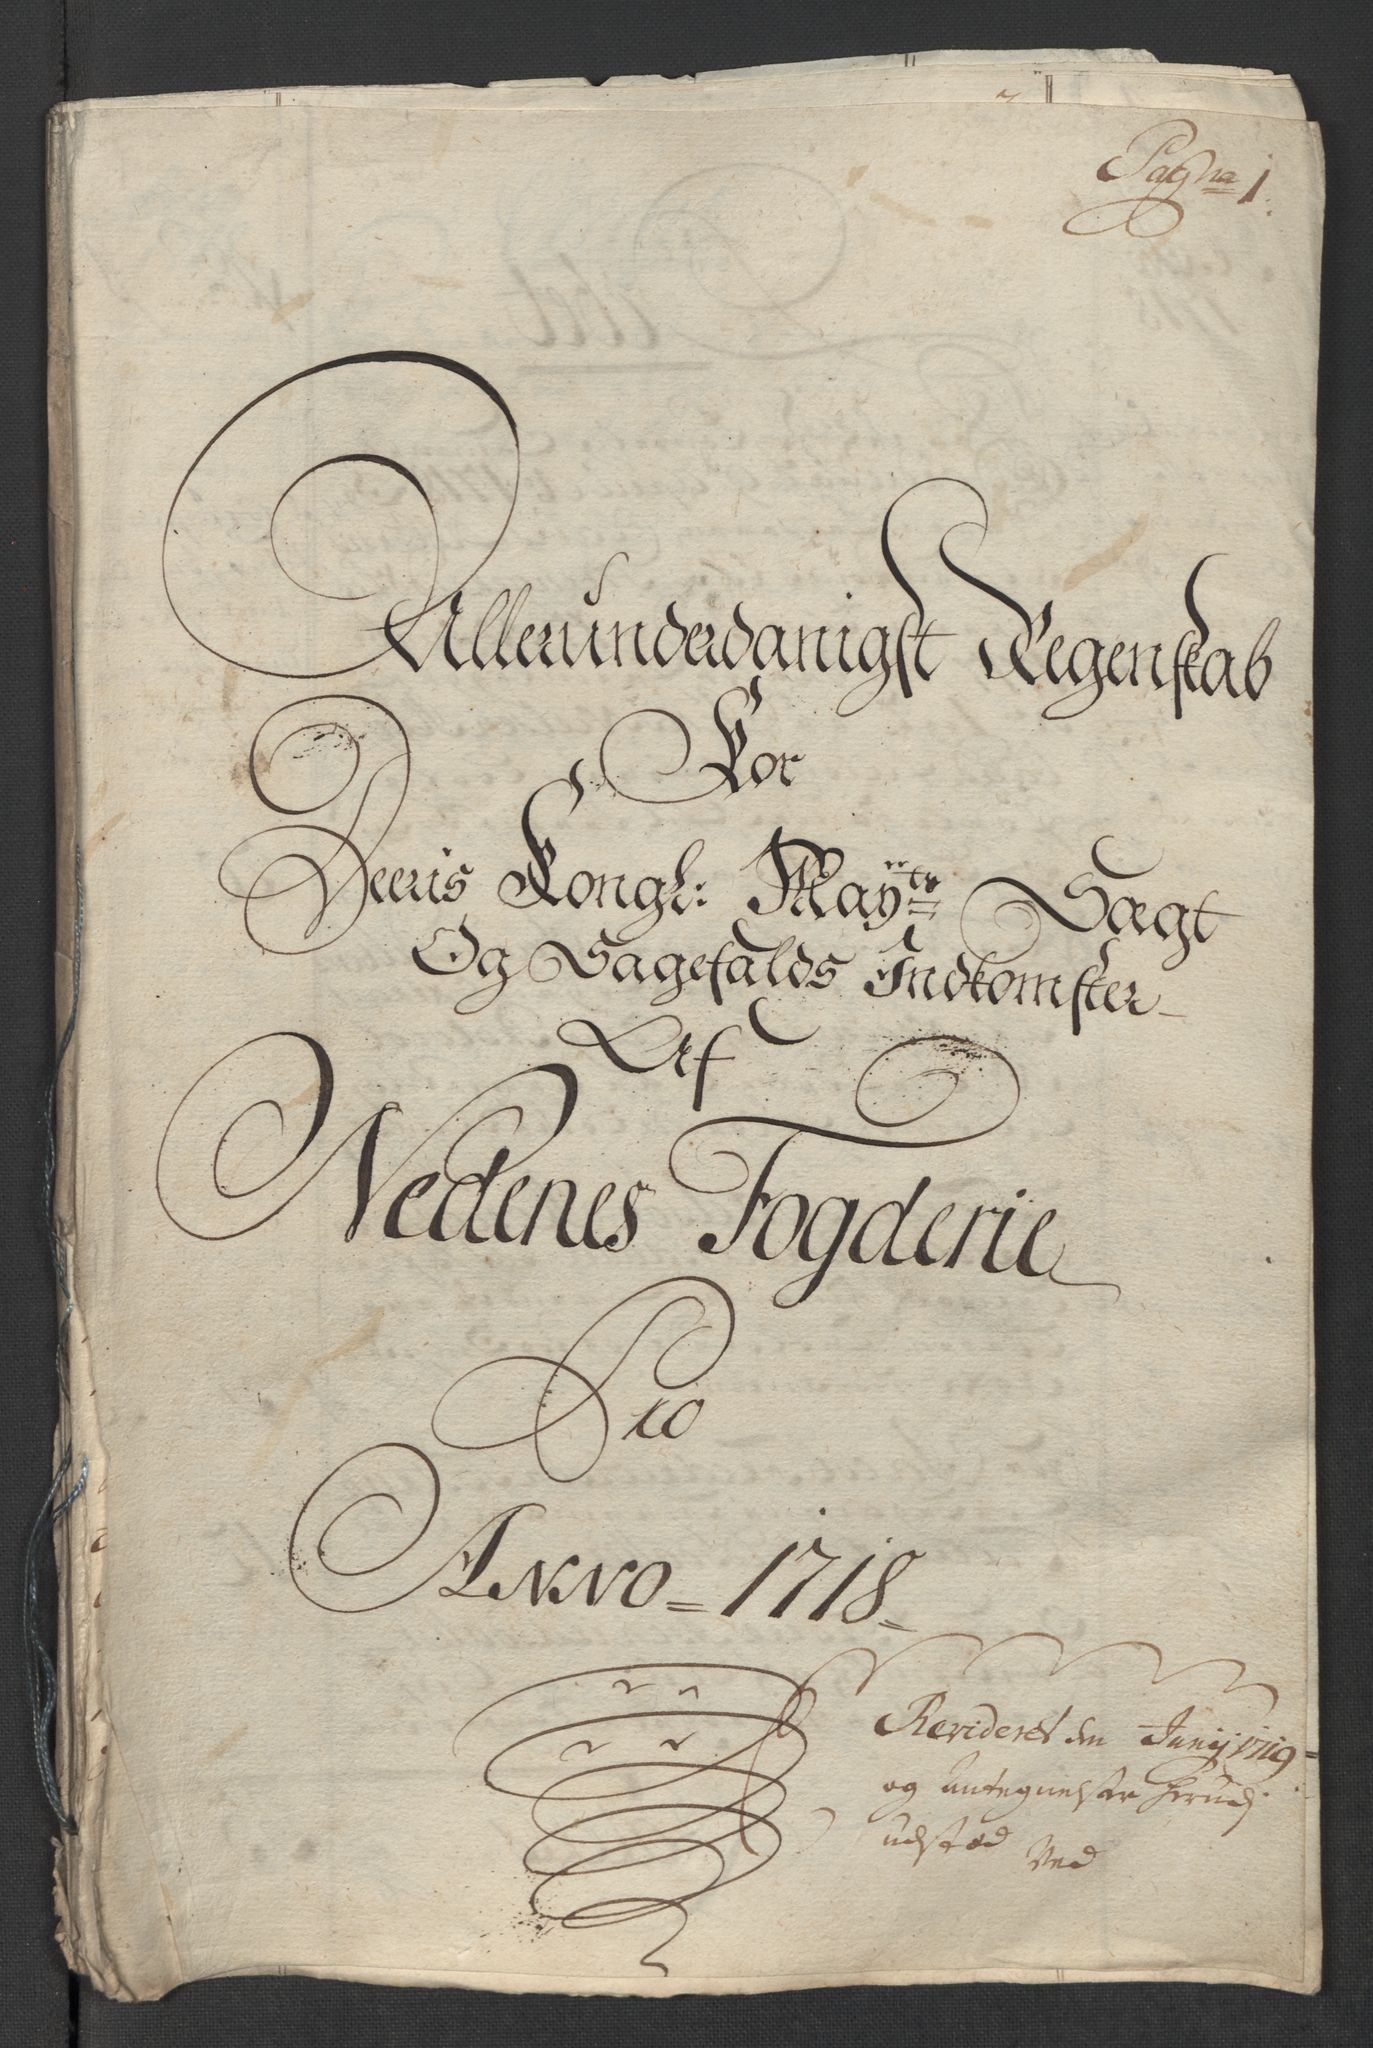 Pagina 1.
Allerunderdanigst Regenskab
For
Deris Kongl: Mayᵗˢ Sagt
Og Sagefalds Indkomster
Af
Nedenes Fogderie
Pro
Anno 1718
Revideret den Junij 1719
og Antegnelser herud
udstæd Ved